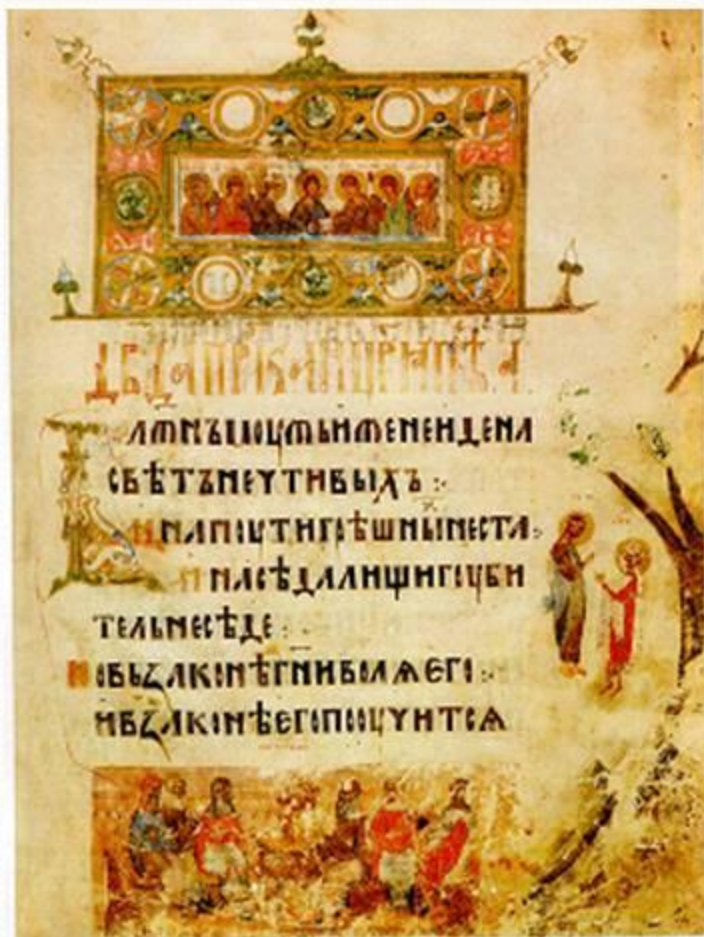 БЛЖНЪМОУЖЬИЖЕНЕИДЕНА
СВѢТЪНЕЧТИВЫХЪ :
И НАПОУТИГРѢШНЫНЕСТА
И НАСѢДАЛИЩИГОУБИ
ТЕЛЬНЕСѢДЕ :
НОВЬЗАКОНѢГНИВОЛѦЕГО :
ИВЗАКОНѢЕГОПООУЧИТСѦ